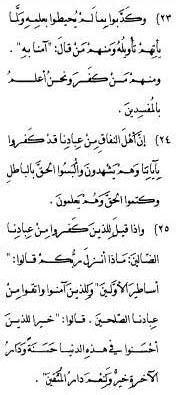 ٢٣) وكَذَّبوا بِمَا لَمْ يُحيطوا بعلمِهِ وَلَمَّا
يأتِهِمْ تأويلُهُ ومنهم مَن قالَ: "آمنا بِهِ".
ومنهم مَن كَفَرَ ونَحنُ أعلمُ
بالمُفسِدينَ.
٢٤) إنَّ أَهْلَ النفاقِ مِنْ عِبادِنا قد كفروا
بآياتِنا وهم يَشهَدونَ وألبَسُوا الحَقَّ بالباطِلِ
وكتموا الحَقَّ وَهُمْ يعلمونَ.
٢٥) واذا قيلَ للذينَ كَفَروا مِنْ عِبادِنا
الضالينَ: مَاذا أَنزلَ ربُّكم قالوا: "
أساطيرَ الأوّلينَ" وللذينَ آمنوا واتقوا مِنْ
عبادِنا الصّالحينَ. قالوا: "خيرا للذينَ
أحْسَنوا في هذهِ الدنيا حَسَنَةٌ وَدَارُ
الآخرةِ خيرٌ ولَنِعْمَ دارُ المُتَّقينَ".